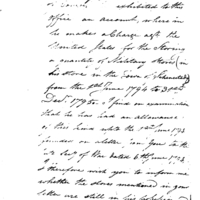 exhibited to the
office an account, where in
he makes a Charge agt the
United States for the Storing
a quantity of Military Stores in
his Store in the Town of
from the 1st June 1794 to 31st
Dec. 1795. I find on examination
that he has had an allowance
of this kind while the
founded on a letter from you to the
Secy of War dated 6th June
I therefore wish you to inform me
whether the stores mentioned in your
letter are still in his